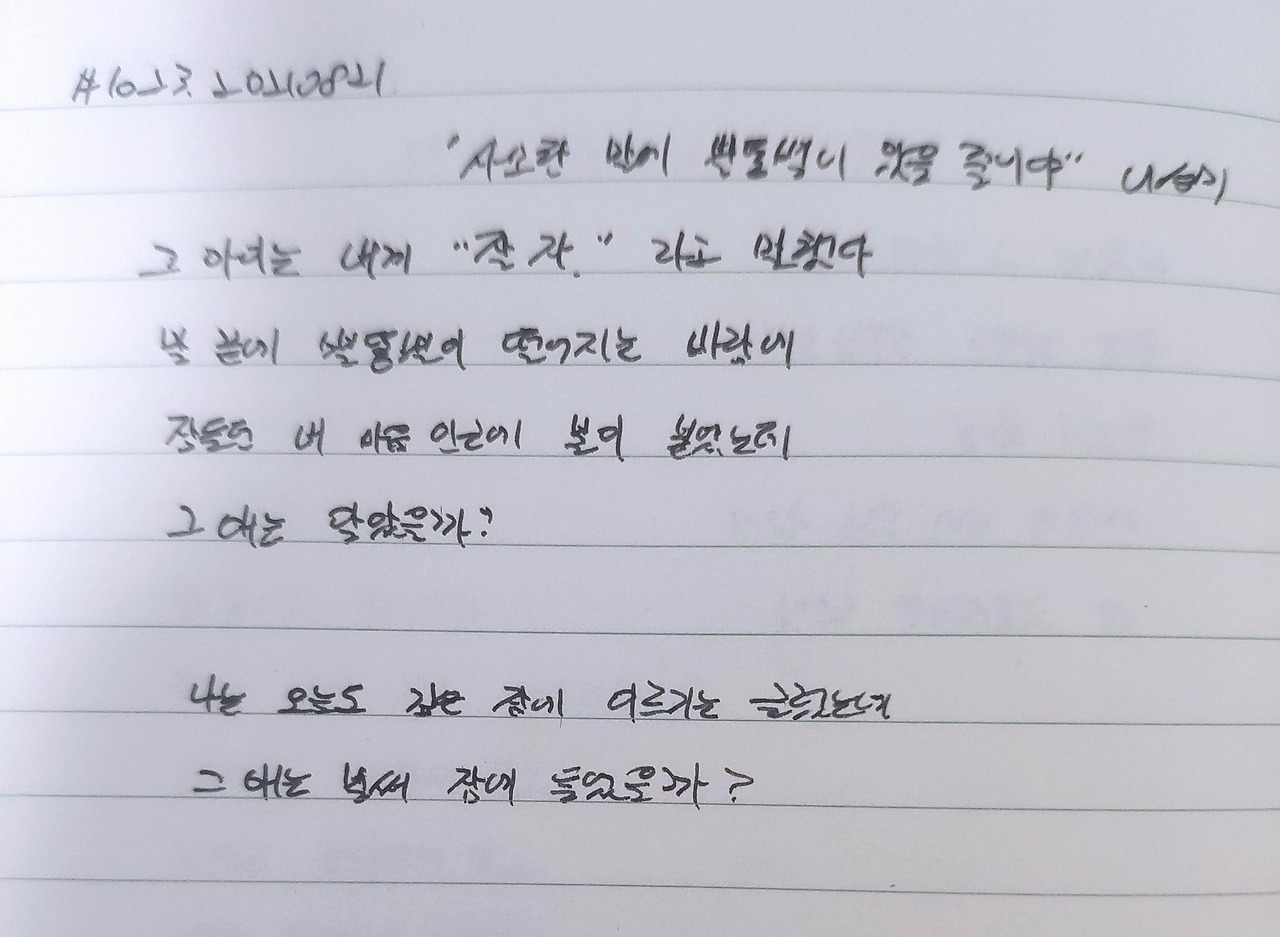 #1023. 20210821
"사소한 말에 별똥별이 있을 줄이야" 나선미
그 아이는 내게 "잘 자." 라고 말했다
말 끝에 별똥별이 떨어지는 바람에
잠들던 내 마음 인근에 불이 붙었는데
그 애는 알았을까?
나는 오늘도 깊은 잠에 이르기는 글렀는데
그 애는 벌써 잠에 들었을까?